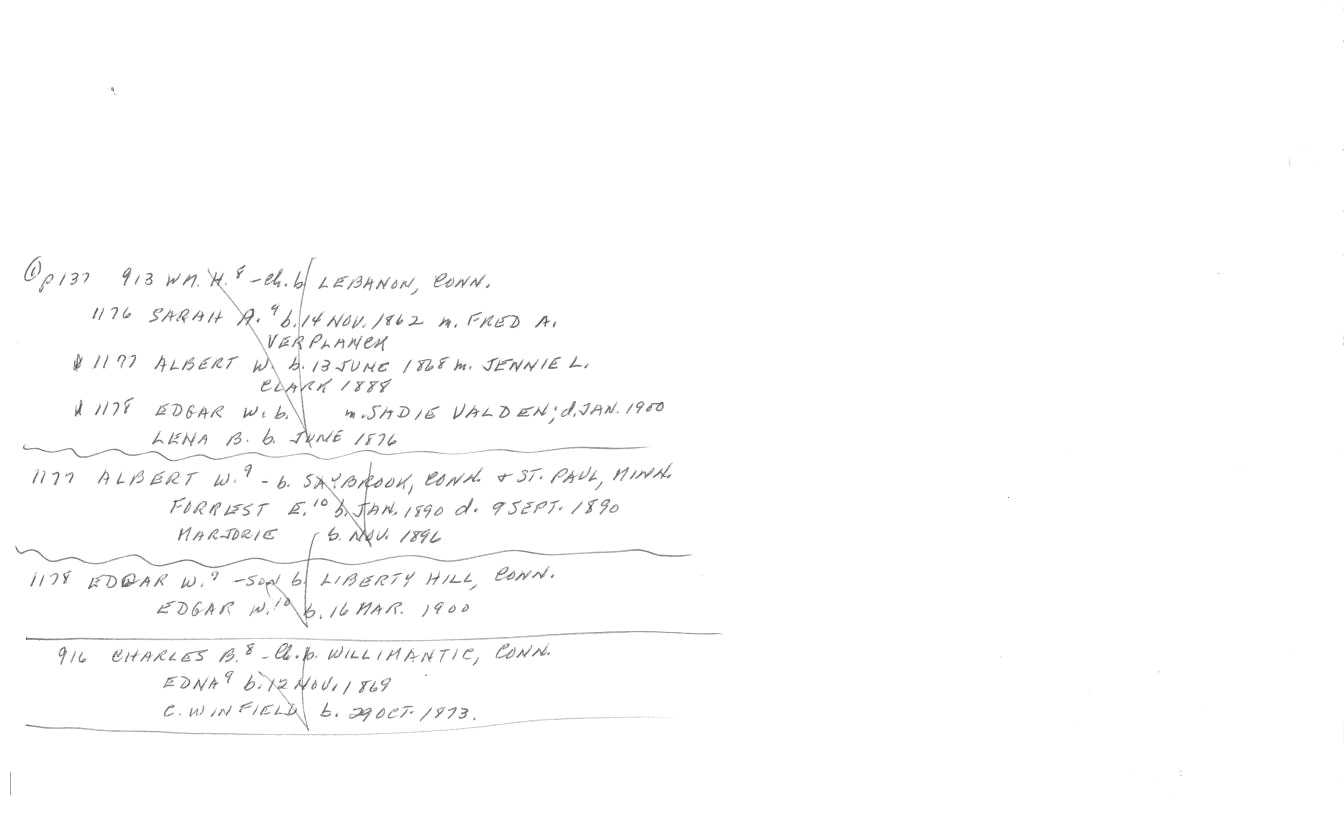 ① p137 913 WM. H.⁸ - Ch. b LEBANON, CONN.
1176 SARAH A.⁹ b. 14 NOV. 1862 m. FRED A.
VERPLANCK
1177 ALBERT W. b. 13 JUNE 1868 m. JENNIE L.
CLARK 1888
1178 EDGAR W. b. m. SADIE VALDEN; d. JAN. 1900
LENA B. b. JUNE 1876
1177 ALBERT W.⁹ - b. SAYBROOK, CONN. & ST. PAUL, MINN.
FORREST E.¹⁰ b. JAN. 1890 d. 9 SEPT. 1890
MARJORIE b. NOV. 1896
1178 EDGAR W.⁹ - SON b. LIBERTY HILL, CONN.
EDGAR W.¹⁰ b. 16 MAR. 1900
916 CHARLES B.⁸ - Ch. b. WILLIMANTIC, CONN.
EDNA⁹ b. 12 NOV. 1869
C. WINFIELD b. 29 OCT. 1873.